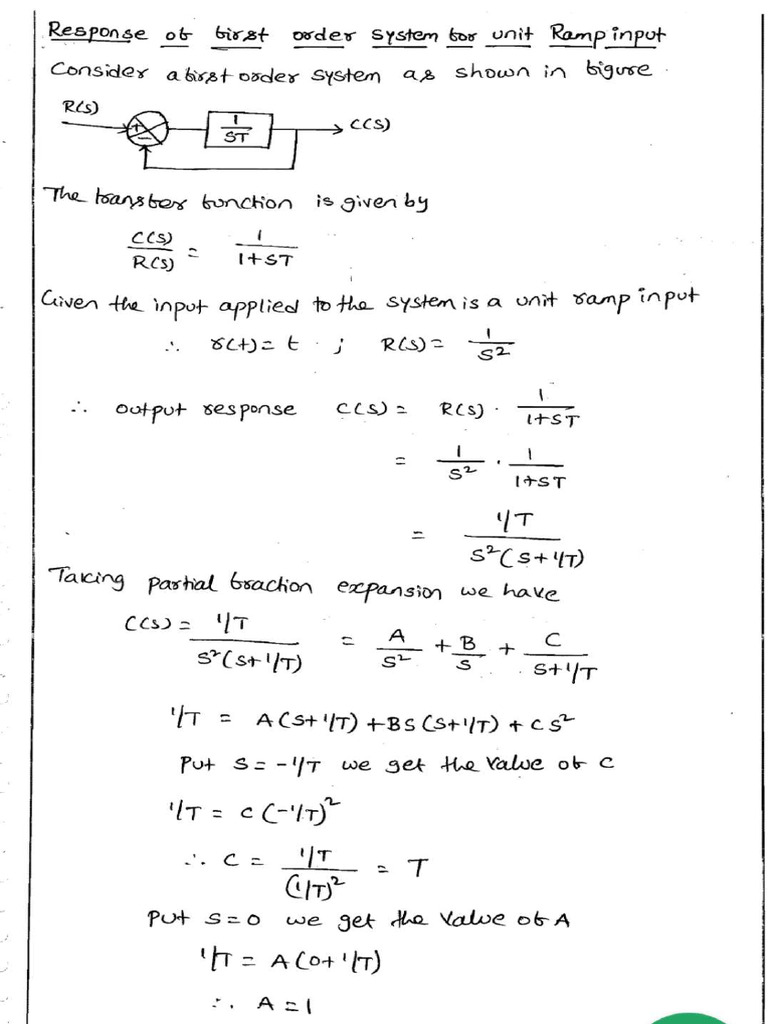 Response of first order system for unit Ramp input
Consider a first order system as shown in figure.
R(s)
+
−
1/ST
C(S)
The transfer function is given by
C(S)/R(S) = 1/1+ST
Given the input applied to the system is a unit ramp input
∴ r(t) = t ; R(S) = 1/S²
∴ output response C(S) = R(S) · 1/1+ST
= 1/S² · 1/1+ST
= 1/T / S²(S+1/T)
Taking partial fraction expansion we have
C(S) = 1/T / S²(S+1/T) = A/S² + B/S + C/S+1/T
1/T = A(S+1/T) + BS(S+1/T) + CS²
Put S = -1/T we get the value of C
1/T = C(-1/T)²
∴ C = 1/T / (1/T)² = T
Put S=0 we get the value of A
1/T = A(0+1/T)
∴ A=1